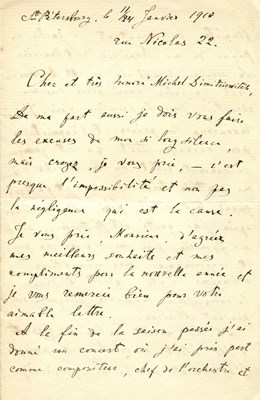 St Pétersbourg, le 1/14 Janvier 1910
rue Nicolas 22.
Cher et très honoré Michel Dimitriewitch,
De ma part aussi je dois vous faire
les excuses de mon si long silence,
mais croyez, je vous prie, — c'est
presque l'impossibilité et non pas
la négligence qui est la cause.
Je vous prie, Monsieur, d'agréer
mes meilleurs souhaits et mes
compliments pour la nouvelle année et
je vous remercie bien pour votre
aimable lettre.
A la fin de la saison passée j'ai
donné un concert où j'ai pris part
comme compositeur, chef de l'orchestre et